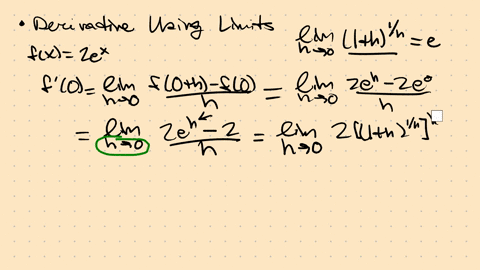 • Derivative Using Limits
lim h→0 (1+h)^1/h = e
f(x) = 2e^x
f'(0) = lim h→0 f(0+h)-f(0) / h = lim h→0 2e^h - 2e^0 / h
= lim h→0 2e^h - 2 / h = lim h→0 2[(1+h)^1/h]^h